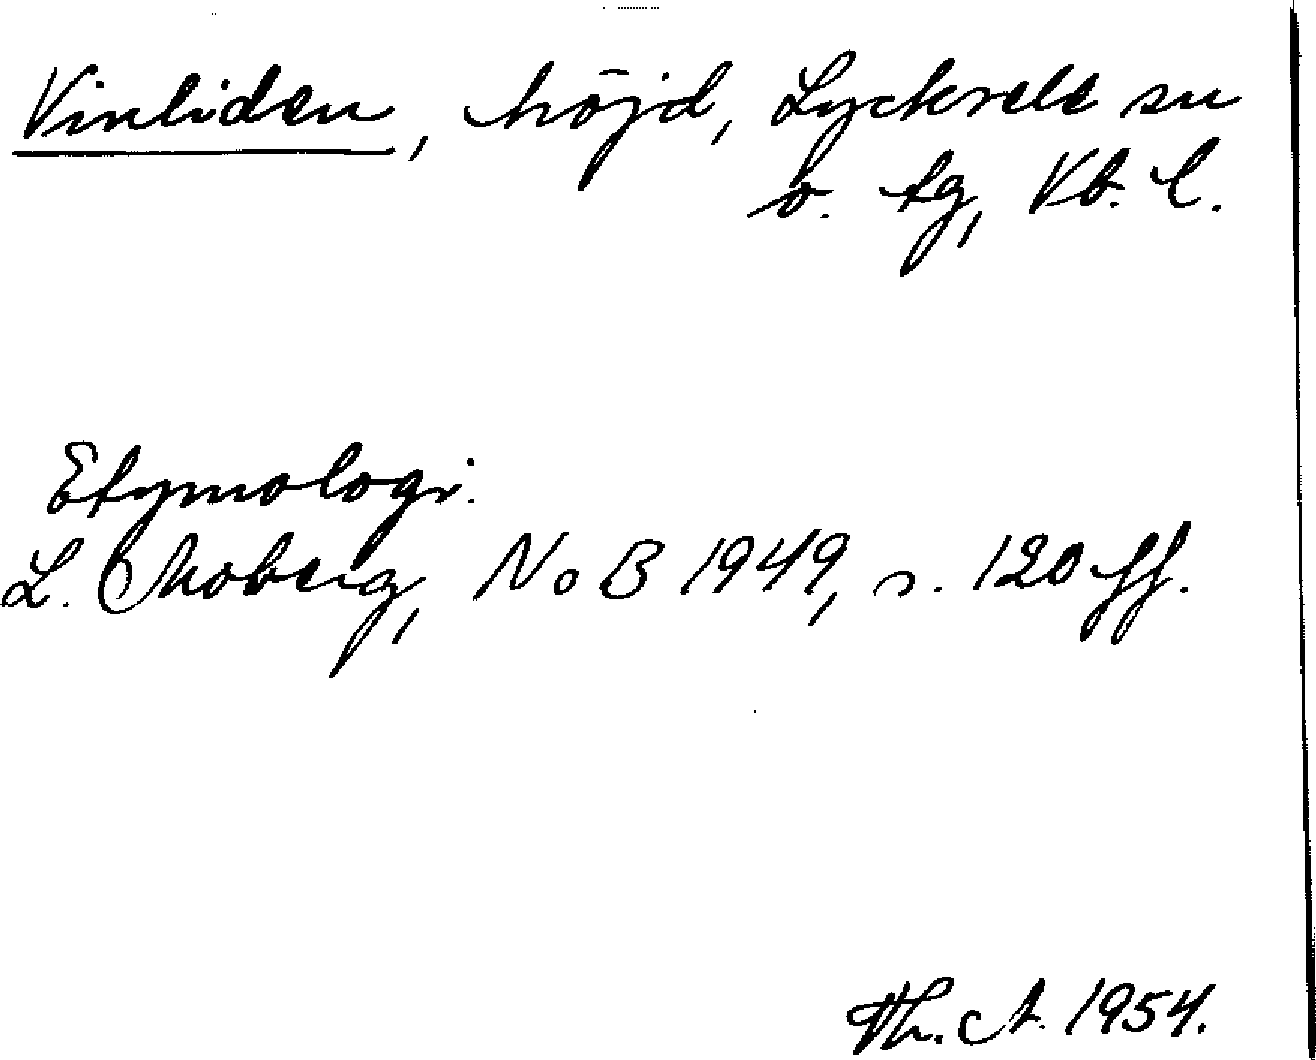 Vinliden, höjd, Lycksele sn
o. tg, Vb. l.
Etymologi.
L. Moberg, NoB 1949, s. 120 ff.
Th. A. 1954.